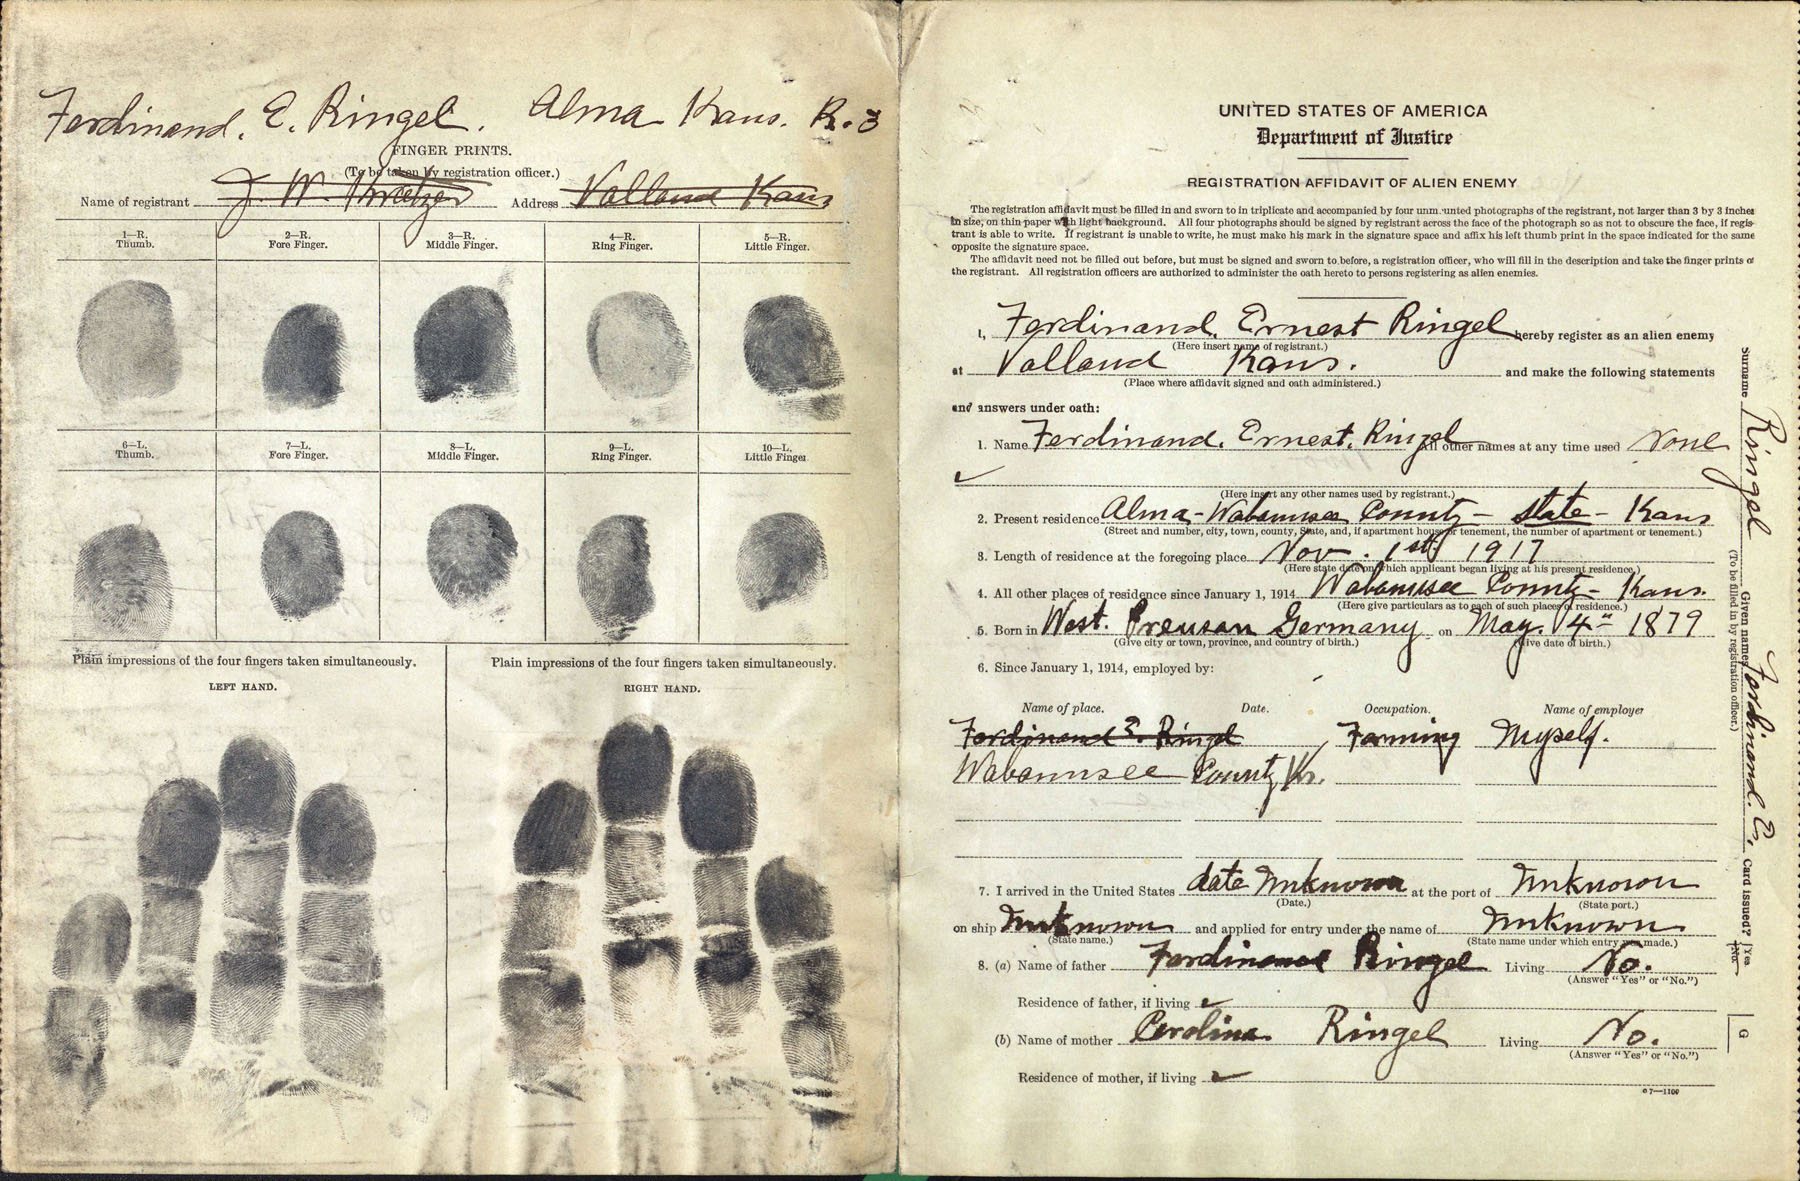 Ferdinand. E. Ringel. Alma Kans. R. 3
FINGER PRINTS.
(To be taken by registration officer.)
Name of registrant J. W. Kratzer Address Volland Kans
1—R. Thumb. 2—R. Fore Finger. 3—R. Middle Finger. 4—R. Ring Finger. 5—R. Little Finger.
6—L. Thumb. 7—L. Fore Finger. 8—L. Middle Finger. 9—L. Ring Finger. 10—L. Little Finger.
Plain impressions of the four fingers taken simultaneously.
LEFT HAND.
Plain impressions of the four fingers taken simultaneously.
RIGHT HAND.
UNITED STATES OF AMERICA
Department of Justice
REGISTRATION AFFIDAVIT OF ALIEN ENEMY
The registration affidavit must be filled in and sworn to in triplicate and accompanied by four unmounted photographs of the registrant, not larger than 3 by 3 inches
in size, on thin paper with light background. All four photographs should be signed by registrant across the face of the photograph so as not to obscure the face, if regis-
trant is able to write. If registrant is unable to write, he must make his mark in the signature space and affix his left thumb print in the space indicated for the same
opposite the signature space.
The affidavit need not be filled out before, but must be signed and sworn to before, a registration officer, who will fill in the description and take the finger prints of
the registrant. All registration officers are authorized to administer the oath hereto to persons registering as alien enemies.
I, Ferdinand. Ernest Ringel hereby register as an alien enemy
(Here insert name of registrant.)
at Volland Kans. and make the following statements
(Place where affidavit signed and oath administered.)
and answers under oath:
1. Name Ferdinand. Ernest. Ringel All other names at any time used None
(Here insert any other names used by registrant.)
2. Present residence Alma - Wabaunsee County - State - Kans
(Street and number, city, town, county, State, and, if apartment house or tenement, the number of apartment or tenement.)
3. Length of residence at the foregoing place Nov. 1st 1917
(Here state date on which applicant began living at his present residence.)
4. All other places of residence since January 1, 1914 Wabaunsee County - Kans.
(Here give particulars as to each of such places of residence.)
5. Born in West. Preusan Germany on May. 4" 1879
(Give city or town, province, and country of birth.) (Give date of birth.)
6. Since January 1, 1914, employed by:
Name of place. Date. Occupation. Name of employer
Ferdinand E. Ringel Farming Myself.
Wabaunsee County Ks.
7. I arrived in the United States date Unknown at the port of Unknown
(Date.) (State port.)
on ship Unknown and applied for entry under the name of Unknown
(State name.) (State name under which entry was made.)
8. (a) Name of father Ferdinand Ringel Living No.
(Answer "Yes" or "No.")
Residence of father, if living
(b) Name of mother Carolina Ringel Living No.
(Answer "Yes" or "No.")
Residence of mother, if living
Surname Ringel Given names Ferdinand. E. Card issued? Yes No.
(To be filled in by registration officer.)
G